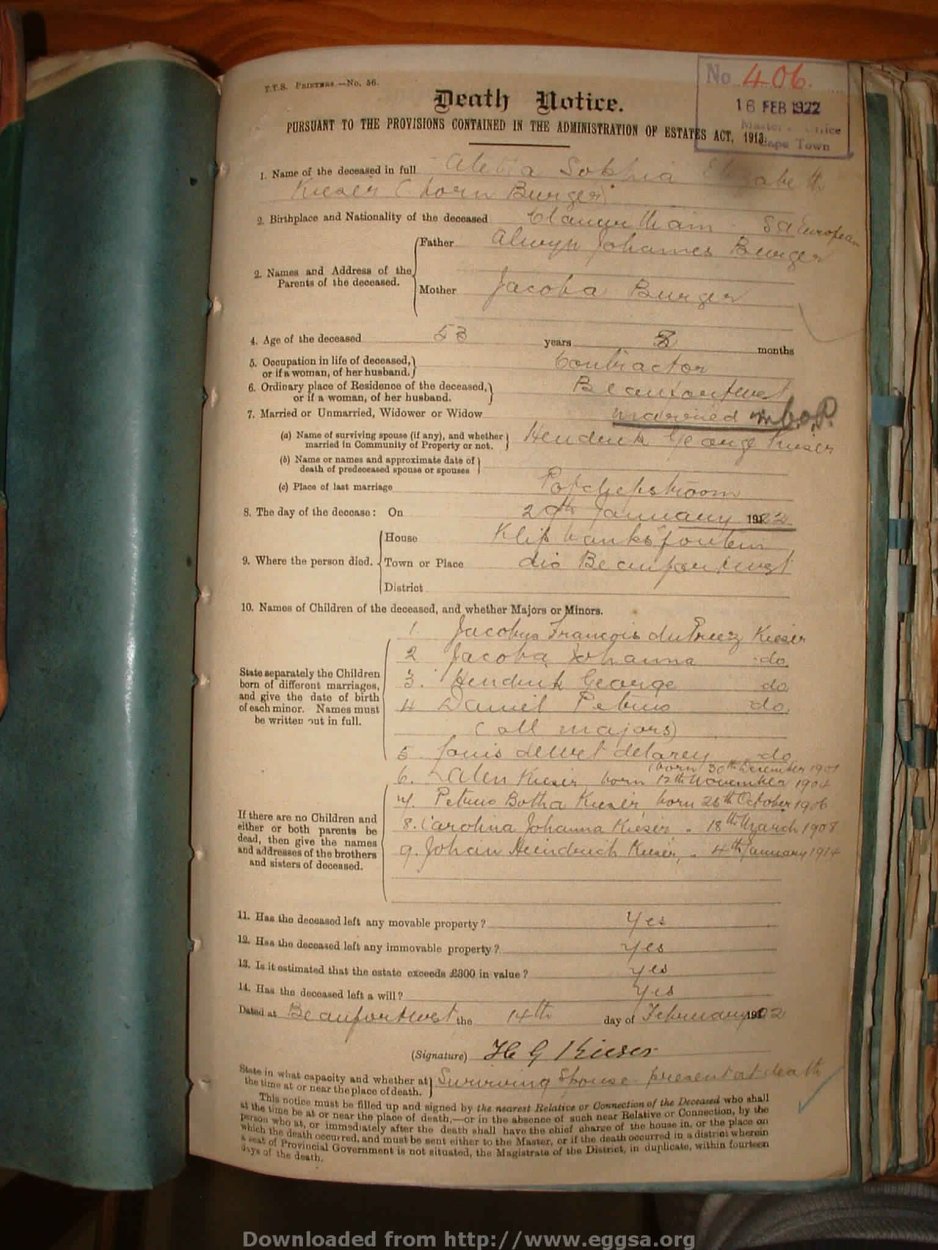 T.T.S. PRINTERS.—No. 56.
No 406
16 FEB 1922
Cape Town
Death Notice.
PURSUANT TO THE PROVISIONS CONTAINED IN THE ADMINISTRATION OF ESTATES ACT, 1913.
1. Name of the deceased in full Aletta Sophia Elizabeth
Kieser (born Burger)
2. Birthplace and Nationality of the deceased Clanwilliam SA European
Father Alwyn Johannes Burger
2. Names and Address of the
Parents of the deceased.
Mother Jacoba Burger
4. Age of the deceased 53 years 8 months
5. Occupation in life of deceased,
or if a woman, of her husband. Contractor
6. Ordinary place of Residence of the deceased,
or if a woman, of her husband. Beaufort West
7. Married or Unmarried, Widower or Widow married in b.o.P.
(a) Name of surviving spouse (if any), and whether
married in Community of Property or not. Hendrik George Kieser
(b) Name or names and approximate date of
death of predeceased spouse or spouses
(c) Place of last marriage Potchefstroom
8. The day of the decease: On 29th January 1922
House Klipbanksfontein
9. Where the person died. Town or Place dis Beaufort West
District
10. Names of Children of the deceased, and whether Majors or Minors.
1. Jacobus Francois du Preez Kieser
2 Jacoba Johanna do
3. Hendrik George do
4 Daniel Petrus do.
(all majors)
State separately the Children
born of different marriages,
and give the date of birth
of each minor. Names must
be written out in full.
5 Louis deWet delarey do
(born 30th December 1901
6. Kieser born 12th November 1904
7. Petrus Botha Kieser born 26th October 1906
8. Carolina Johanna Kieser, " 18th March 1908
9. Johan Hendrich Kieser, " 4th January 1914
If there are no Children and
either or both parents be
dead, then give the names
and addresses of the brothers
and sisters of deceased.
11. Has the deceased left any movable property? Yes
12. Has the deceased left any immovable property? yes
13. Is it estimated that the estate exceeds £300 in value? yes
14. Has the deceased left a will? yes
Dated at Beaufort West the 14th day of February 1922
(Signature) H G Kieser
State in what capacity and whether at
the time at or near the place of death. Surviving Spouse present at death
This notice must be filled up and signed by the nearest Relative or Connection of the Deceased who shall
at the time be at or near the place of death,—or in the absence of such near Relative or Connection, by the
person who at, or immediately after the death shall have the chief charge of the house in, or the place on
which the death occurred, and must be sent either to the Master, or if the death occurred in a district wherein
a seat of Provincial Government is not situated, the Magistrate of the District, in duplicate, within fourteen
days of the death.
Downloaded from http://www.eggsa.org